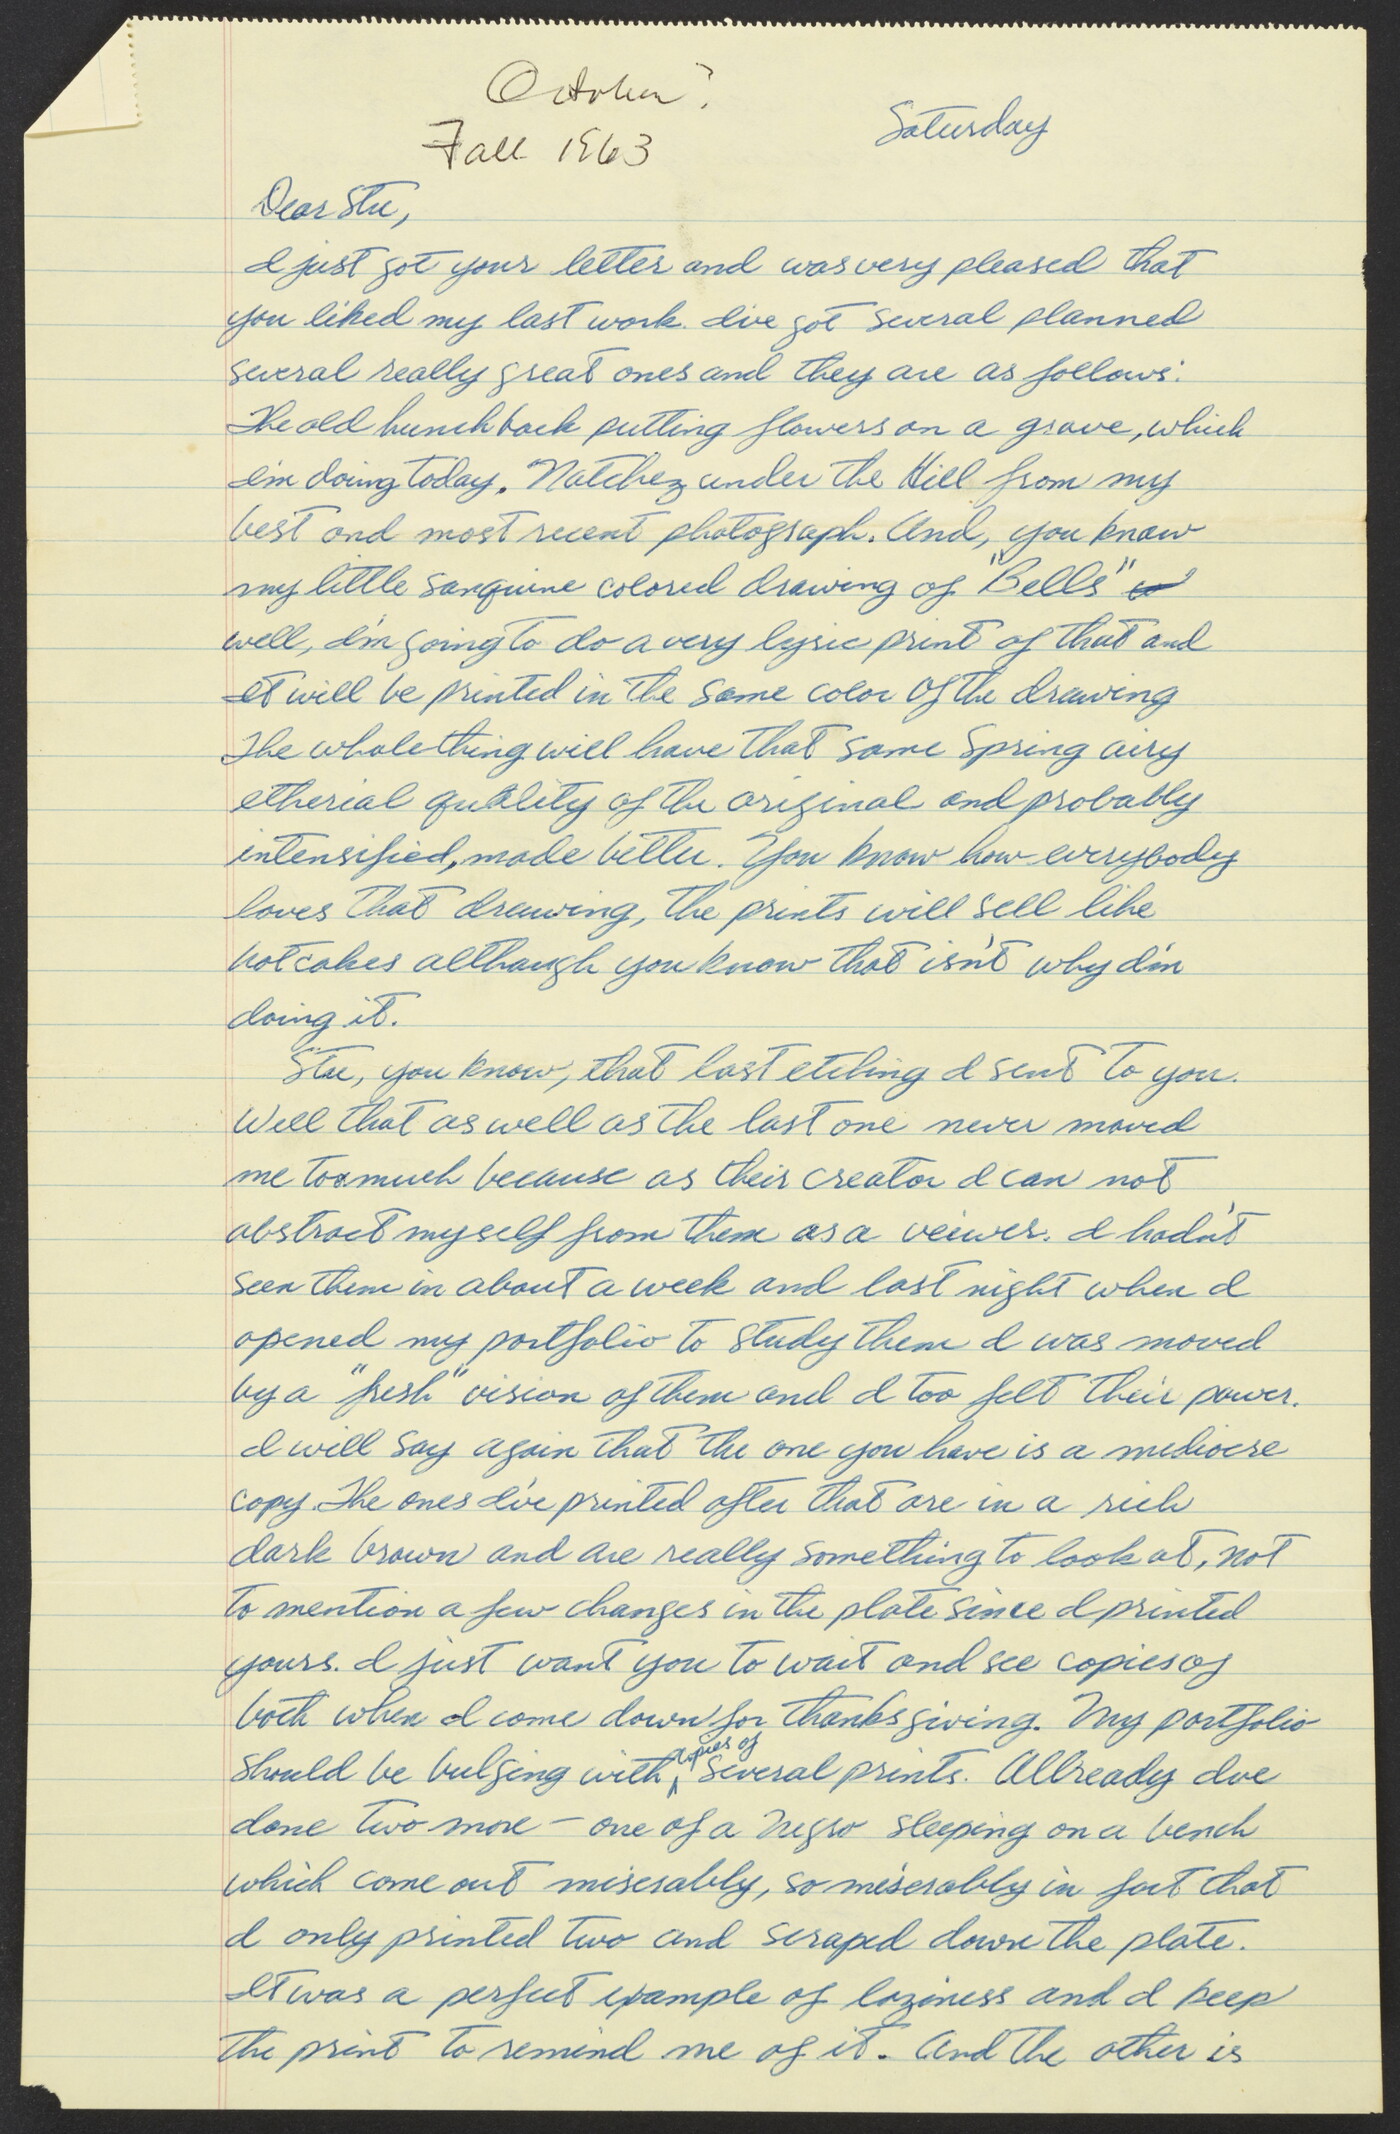 October?
Fall 1963
Saturday
Dear Stu,
I just got your letter and was very pleased that
you liked my last work. I've got several planned
several really great ones and they are as follows:
The old hunchback putting flowers on a grave, which
I'm doing today. Natchez under the Hill from my
best and most recent photograph. And, you know
my little sanguine colored drawing of "Bells"
well, I'm going to do a very lyric print of that and
It will be printed in the same color of the drawing
The whole thing will have that same Spring airy
etherial quality of the original and probably
intensified, made better. You know how everybody
loves that drawing, the prints will sell like
hotcakes although you know that isn't why I'm
doing it.
Stu, you know, that last etching I sent to you.
Well that as well as the last one never moved
me too much because as their creator I can not
abstract myself from them as a veiwer. I hadn't
seen them in about a week and last night when I
opened my portfolio to study them I was moved
by a "fresh" vision of them and I too felt their power.
I will say again that the one you have is a mediocre
copy. The ones I've printed after that are in a rich
dark brown and are really something to look at, not
to mention a few changes in the plate since I printed
yours. I just want you to wait and see copies of
both when I come down for thanksgiving. My portfolio
should be bulging with copies of several prints. Allready I've
done two more – one of a Negro sleeping on a bench
which came out miserably, so miserably in fact that
I only printed two and scraped down the plate.
It was a perfect example of laziness and I keep
the print to remind me of it. And the other is